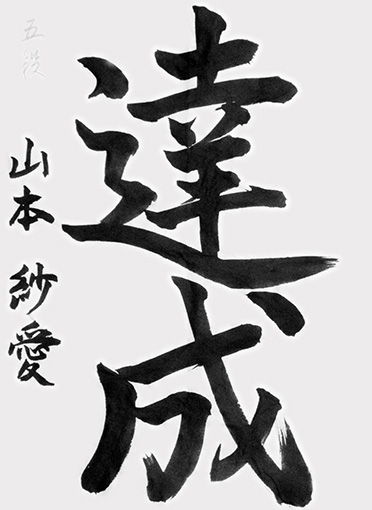 達成
五段
山本 紗愛